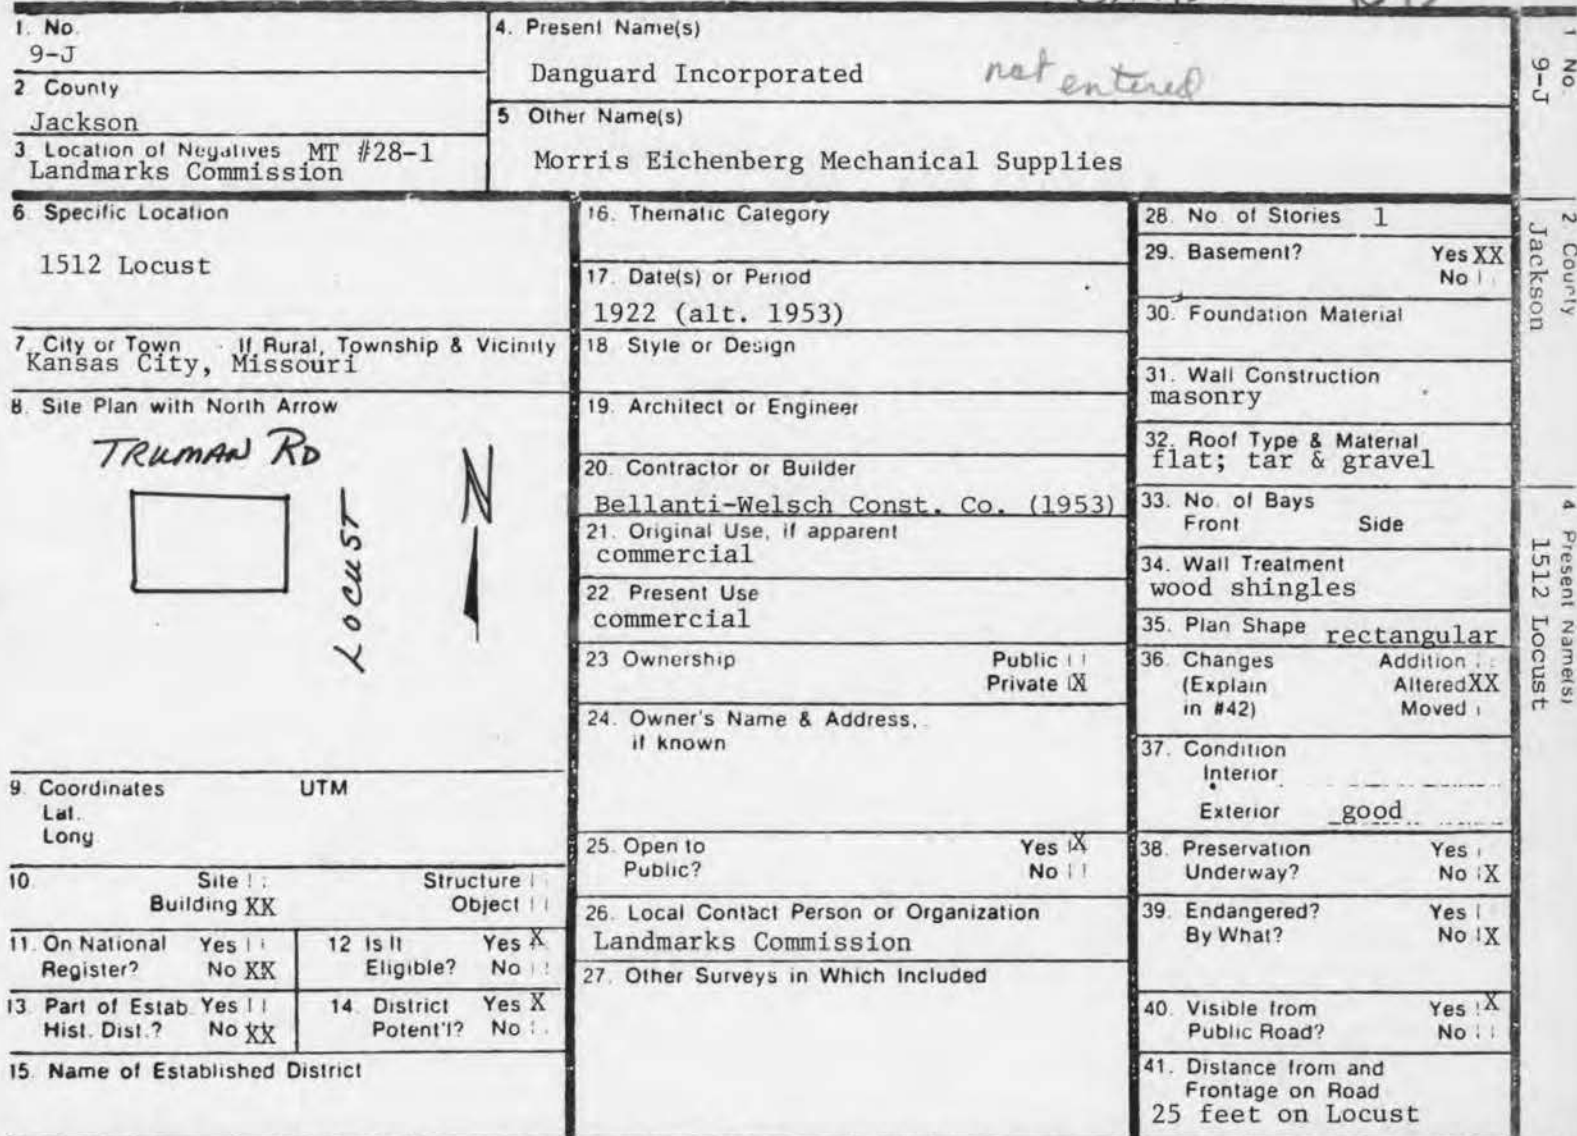 1. No.
9-J
2 County
Jackson
3 Location of Negatives MT #28-1
Landmarks Commission
4. Present Name(s)
Danguard Incorporated
not entered
5 Other Name(s)
Morris Eichenberg Mechanical Supplies
6. Specific Location
1512 Locust
7. City or Town If Rural, Township & Vicinity
Kansas City, Missouri
8. Site Plan with North Arrow
TRUMAN RD
LOCUST
N
9. Coordinates UTM
Lat.
Long
10. Site Structure
Building XX Object
11. On National Yes
Register? No XX
12 Is It Yes X
Eligible? No
13. Part of Estab. Yes
Hist. Dist.? No XX
14. District Yes X
Potent'l? No
15. Name of Established District
16. Thematic Category
17. Date(s) or Period
1922 (alt. 1953)
18. Style or Design
19. Architect or Engineer
20. Contractor or Builder
Bellanti-Welsch Const. Co. (1953)
21. Original Use, if apparent
commercial
22. Present Use
commercial
23 Ownership Public
Private X
24. Owner's Name & Address,
if known
25. Open to Yes X
Public? No
26. Local Contact Person or Organization
Landmarks Commission
27. Other Surveys in Which Included
28. No. of Stories 1
29. Basement? Yes XX
No
30. Foundation Material
31. Wall Construction
masonry
32. Roof Type & Material
flat; tar & gravel
33. No. of Bays
Front Side
34. Wall Treatment
wood shingles
35. Plan Shape rectangular
36. Changes Addition
(Explain Altered XX
in #42) Moved
37. Condition
Interior
Exterior good
38. Preservation Yes
Underway? No X
39. Endangered? Yes
By What? No X
40. Visible from Yes X
Public Road? No
41. Distance from and
Frontage on Road
25 feet on Locust
1 No.
9-J
2. County
Jackson
4. Present Name(s)
1512 Locust